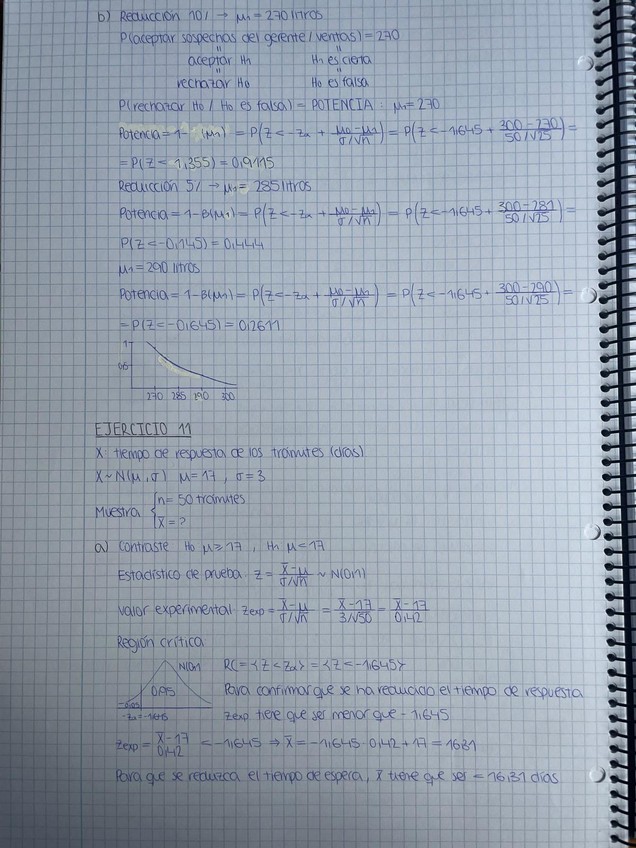 b) Reducción 10% → μ₁ = 270 litros
P(aceptar sospechas del gerente / ventas) = 270
" "
aceptar H₁ H₁ es cierta
" "
rechazar H₀ H₀ es falsa
P(rechazar H₀ / H₀ es falsa) = POTENCIA : μ₁ = 270
Potencia = 1 - (μ₁) = P(Z < -Zα + (μ₀ - μ₁)/(σ/√n)) = P(Z < -1,645 + (300 - 270)/(50/√25)) =
= P(Z < 1,355) = 0,9115
Reducción 5% → μ₁ = 285 litros
Potencia = 1 - B(μ₁) = P(Z < -Zα + (μ₀ - μ₁)/(σ/√n)) = P(Z < -1,645 + (300 - 281)/(50/√25)) =
P(Z < -0,145) = 0,444
μ₁ = 290 litros
Potencia = 1 - B(μ₁) = P(Z < -Zα + (μ₀ - μ₁)/(σ/√n)) = P(Z < -1,645 + (300 - 290)/(50/√25)) =
= P(Z < -0,645) = 0,2611
1
270 285 290 300
EJERCICIO 11
X: tiempo de respuesta de los trámites (días)
X ~ N(μ, σ) μ = 17, σ = 3
Muestra { n = 50 trámites
x̄ = ?
a) Contraste H₀ μ ≥ 17, H₁ μ < 17
Estadístico de prueba Z = (x̄ - μ)/(σ/√n) ~ N(0,1)
Valor experimental Zexp = (x̄ - μ)/(σ/√n) = (x̄ - 17)/(3/√50) = (x̄ - 17)/0,42
Región crítica
N(0,1) RC = {Z < Zα} = {Z < -1,645}
0,95 Para confirmar que se ha reducido el tiempo de respuesta
-Zα = -1,645 Zexp tiene que ser menor que -1,645
Zexp = (x̄ - 17)/0,42 < -1,645 ⇒ x̄ = -1,645 · 0,42 + 17 = 1631
Para que se reduzca el tiempo de espera, x̄ tiene que ser = 16,31 días